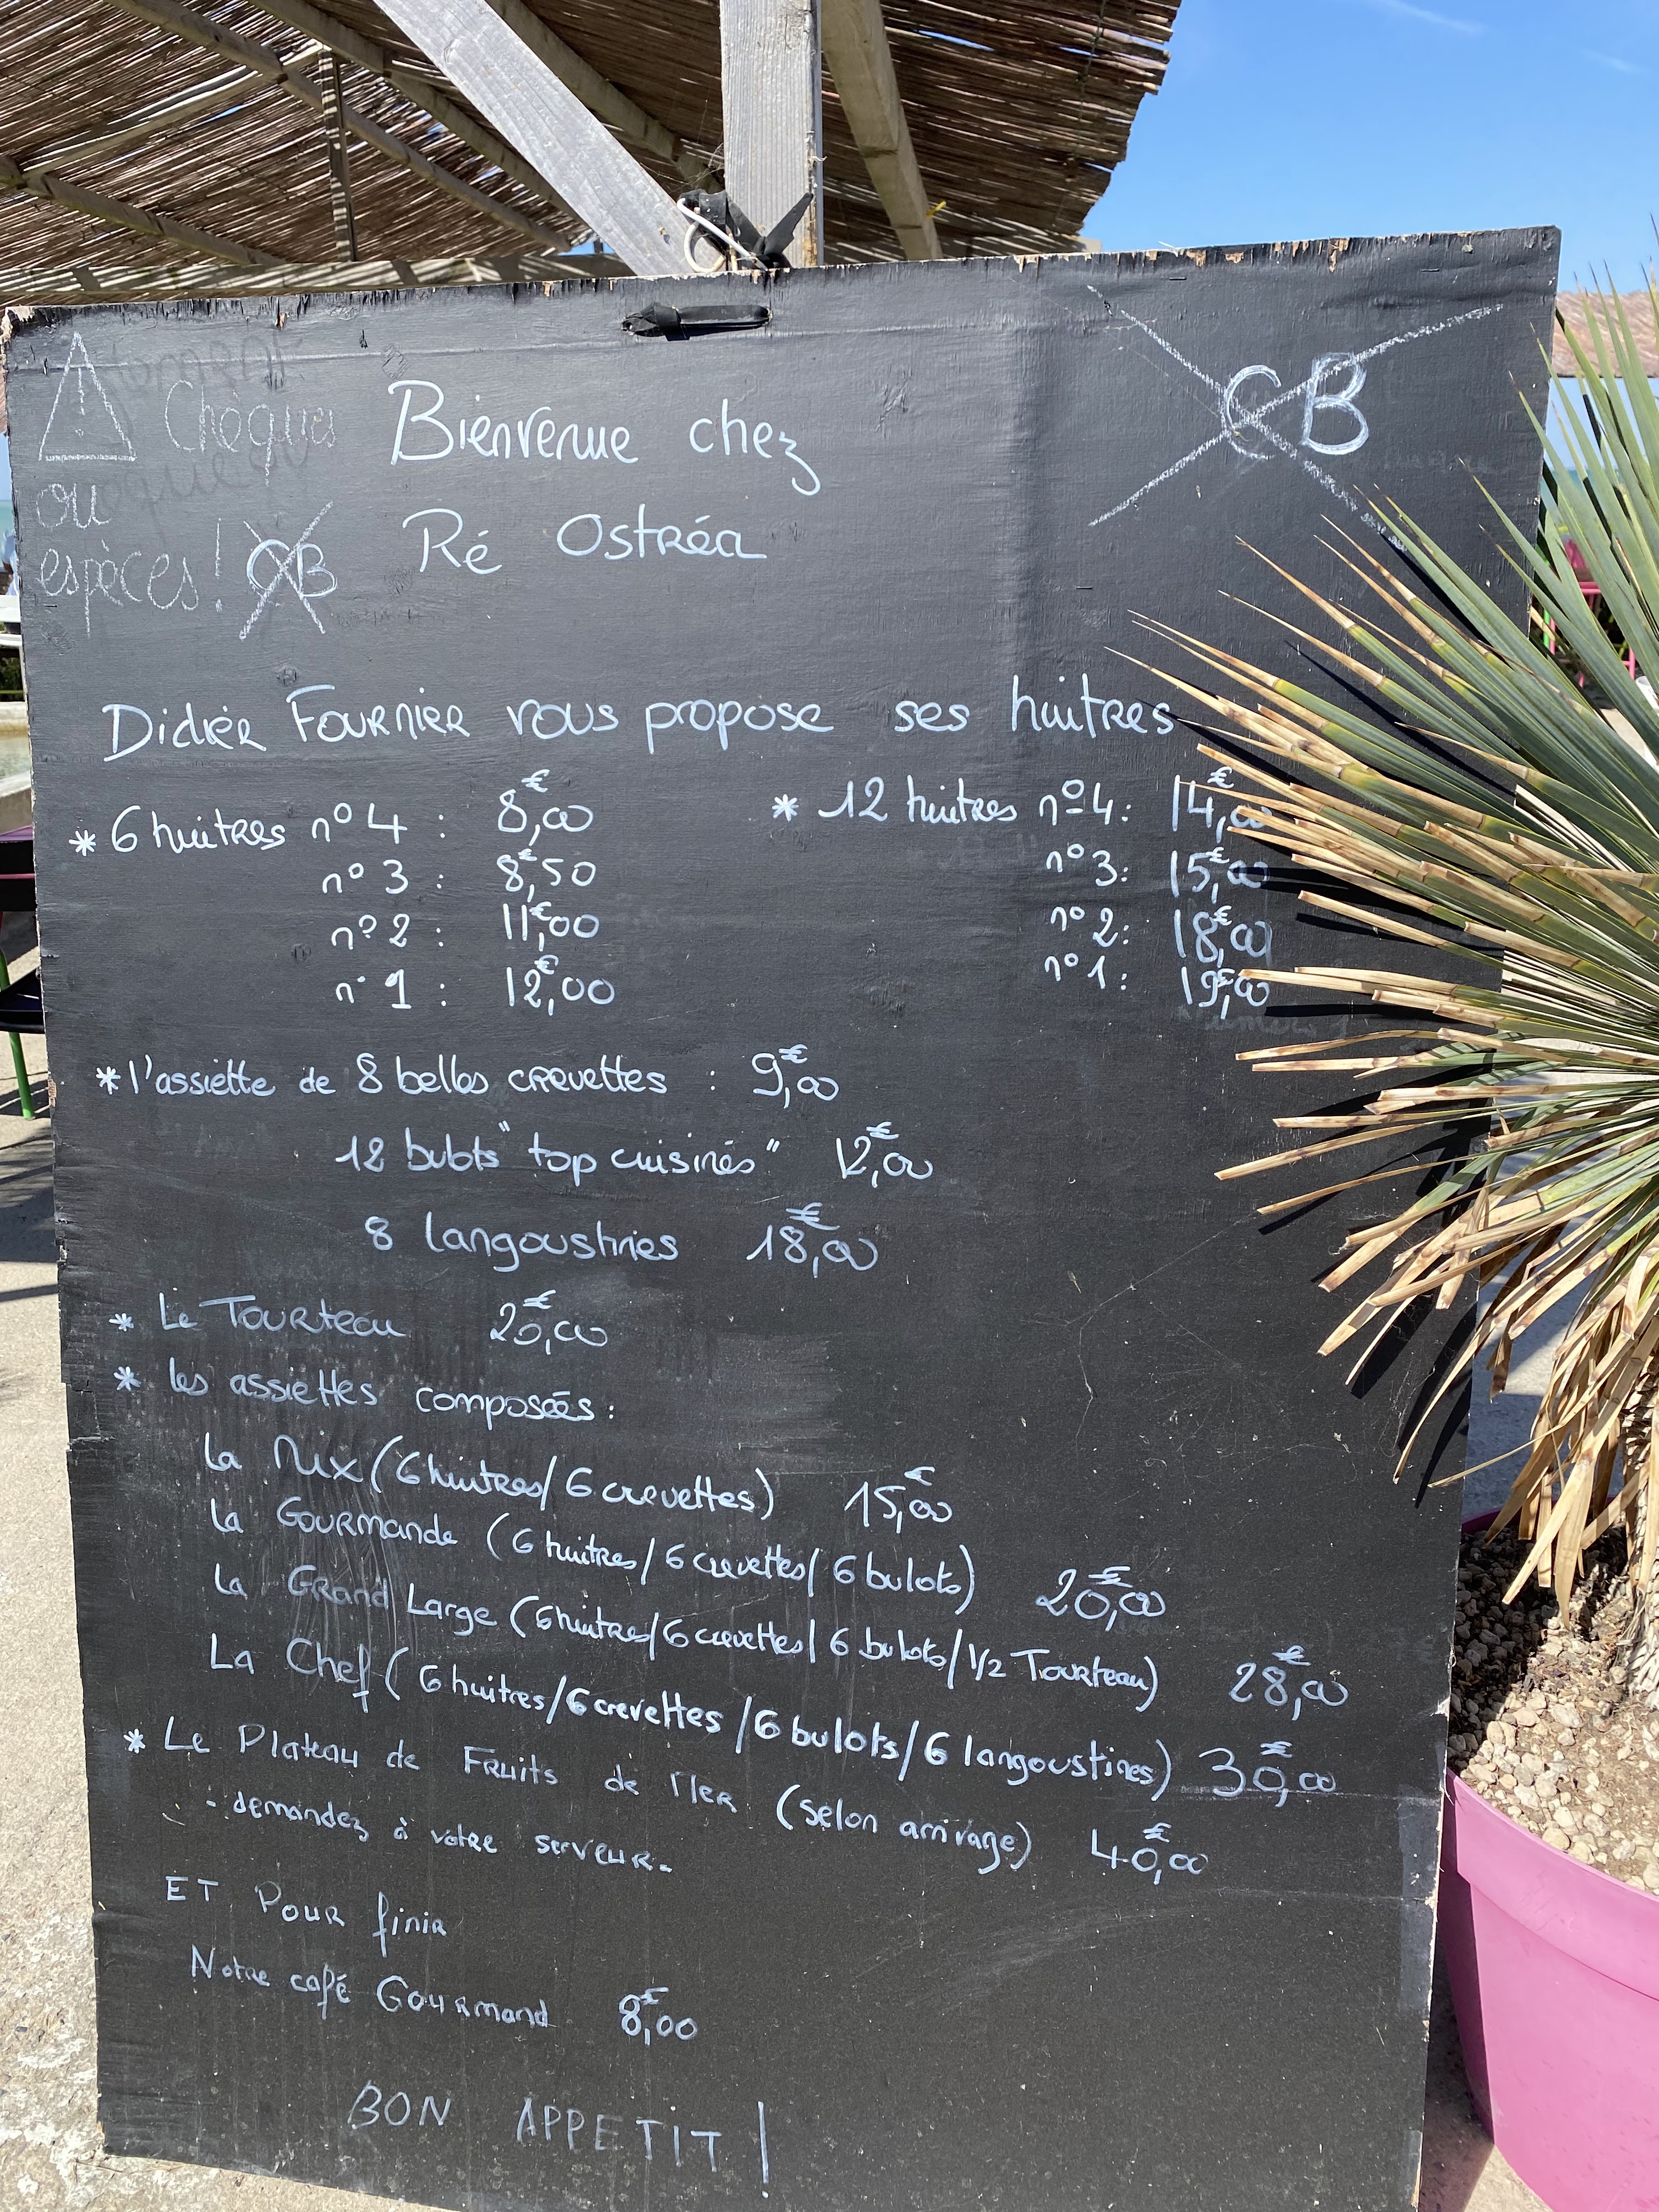 Chèques
ou
espèces! CB
CB
Bienvenue chez
Ré Ostréa
Didier Fournier vous propose ses huitres
* 6 huitres n° 4 : 8,00€
n° 3 : 8,50€
n° 2 : 11,00€
n° 1 : 12,00€
* 12 huitres n° 4 : 14,00€
n° 3 : 15,00€
n° 2 : 18,00€
n° 1 : 19,00€
* l'assiette de 8 belles crevettes : 9,00€
12 bulots "top cuisinés" 12,00€
8 langoustines 18,00€
* Le Tourteau 20,00€
* les assiettes composées :
La Mix (6 huitres/6 crevettes) 15,00€
La Gourmande (6 huitres/6 crevettes/6 bulots) 20,00€
La Grand Large (6 huitres/6 crevettes/6 bulots/1/2 Tourteau) 28,00€
La Chef (6 huitres/6 crevettes/6 bulots/6 langoustines) 30,00€
* Le Plateau de Fruits de Mer (selon arrivage) 40,00€
- demandez à votre serveur.
ET Pour finir
Notre café Gourmand 8,00€
BON APPETIT !